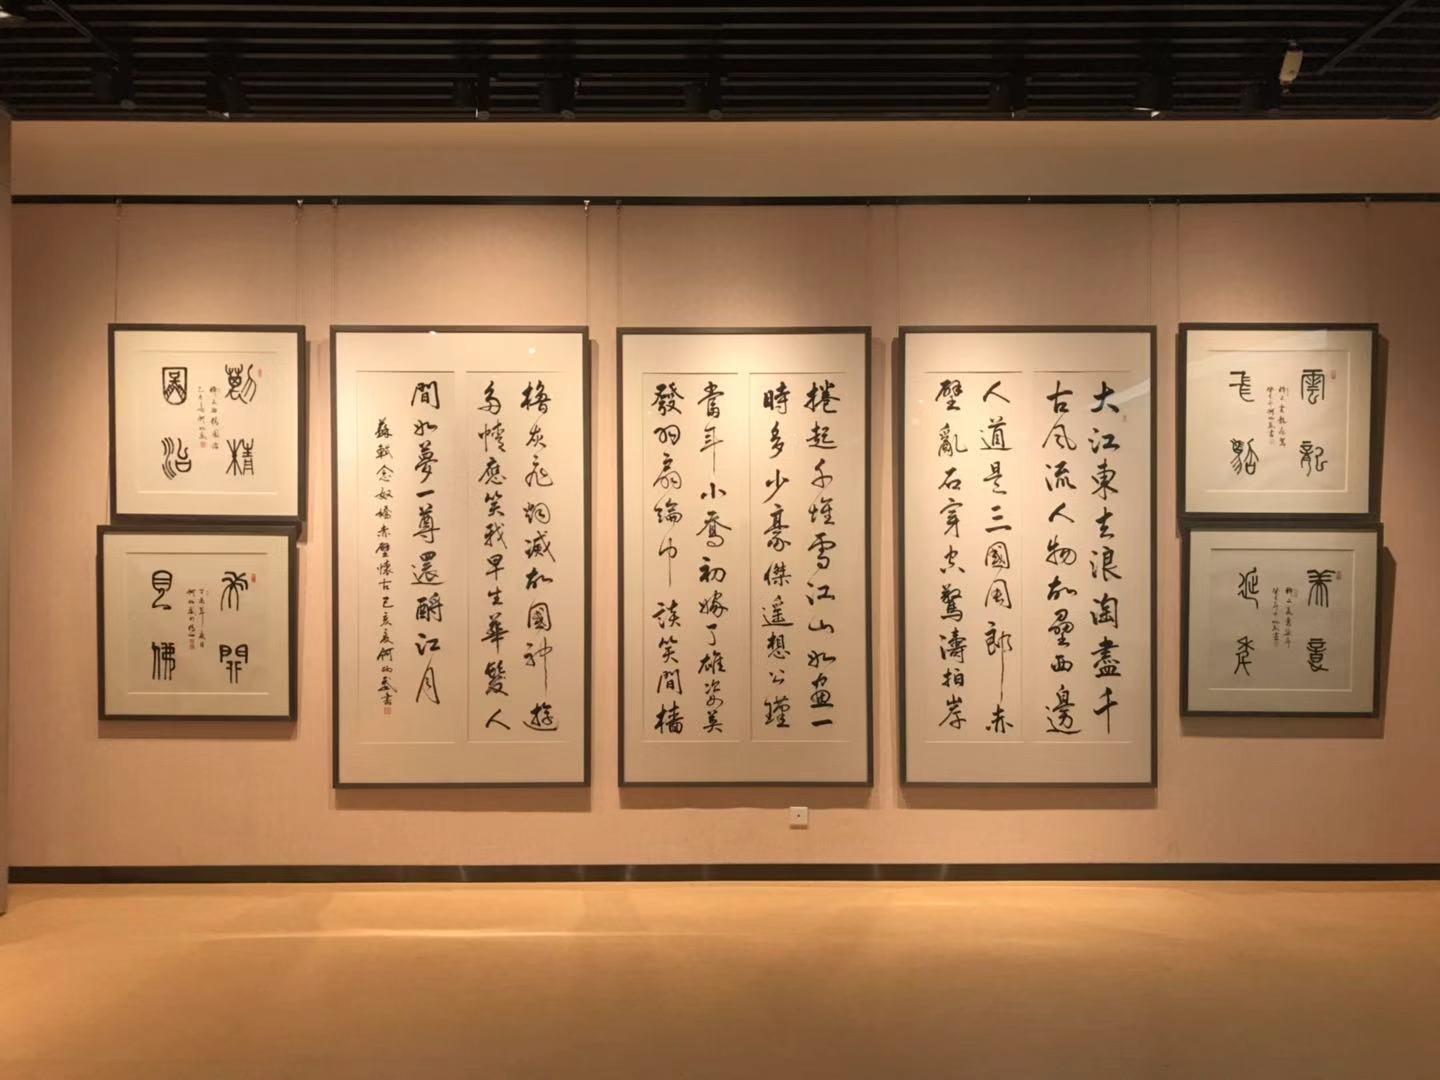 雲龍
美意
延年
大江東去浪淘盡千
古風流人物故壘西邊
人道是三國周郎赤
壁亂石穿空驚濤拍岸
捲起千堆雪江山如畫一
時多少豪傑遙想公瑾
當年小喬初嫁了雄姿英
發羽扇綸巾談笑間檣
櫓灰飛烟滅故國神遊
多情應笑我早生華髮人
間如夢一尊還酹江月
蘇軾念奴嬌赤壁懷古己亥夏何炳武書
勵精
圖治
花開
見佛